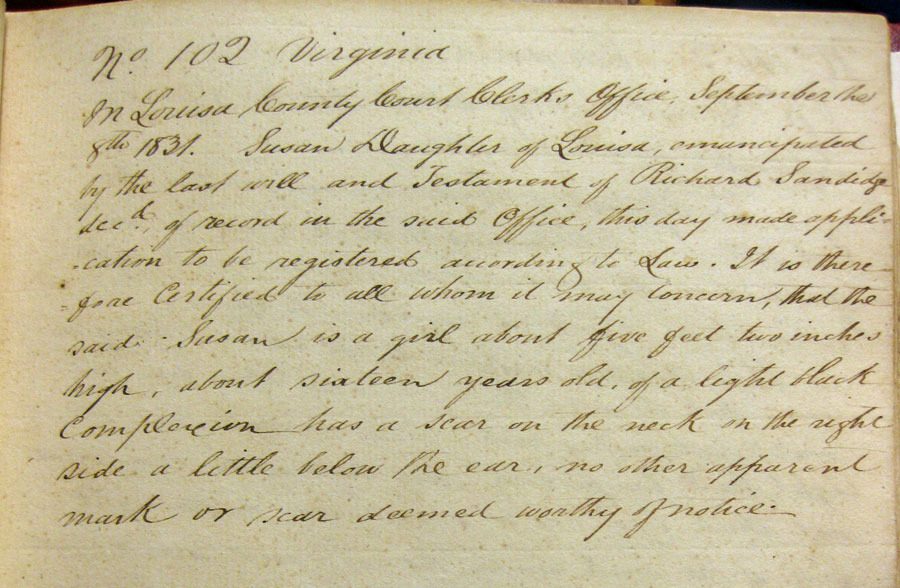 No. 102 Virginia
In Louisa County Court Clerks Office, September the
8th 1831. Susan Daughter of Louisa, emancipated
by the last will and Testament of Richard Sandidge
decd., of record in the said Office, this day made appli-
-cation to be registered according to Law. It is there-
-fore Certified to all whom it may Concern, that the
said Susan is a girl about five feet two inches
high, about sixteen years old, of a light black
Complexion has a scar on the neck on the right
side a little below the ear, no other apparent
mark or scar deemed worthy of notice.